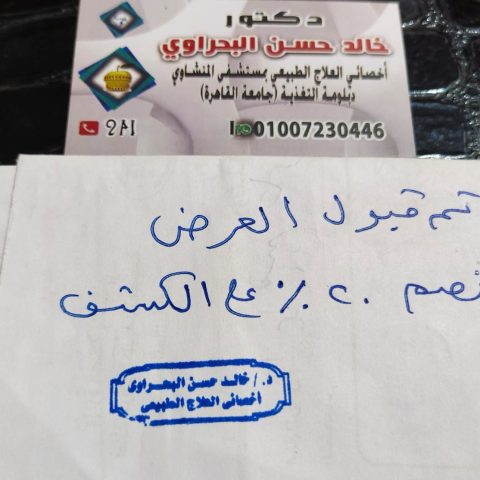 دكتور
خالد حسن البحراوي
أخصائي العلاج الطبيعي بمستشفى المنشاوي
دبلومة التغذية (جامعة القاهرة)
01007230446
تم قبول العرض
خصم ٢٠٪ على الكشف
د./ خالد حسن البحراوى
أخصائى العلاج الطبيعى